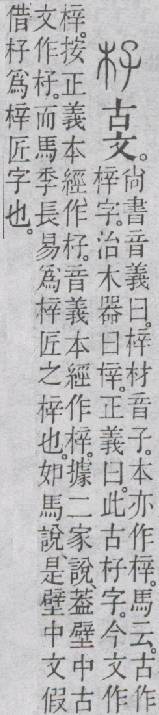 杍古文。尚書音義曰。梓材音子。本亦作梓。馬云。古作
梓字。治木器曰梓。正義曰。此古杍字。今文作
梓。按正義本經作杍。音義本經作梓。據二家說蓋壁中古
文作杍。而馬季長易爲梓匠之梓也。如馬說是壁中文假
借杍爲梓匠字也。